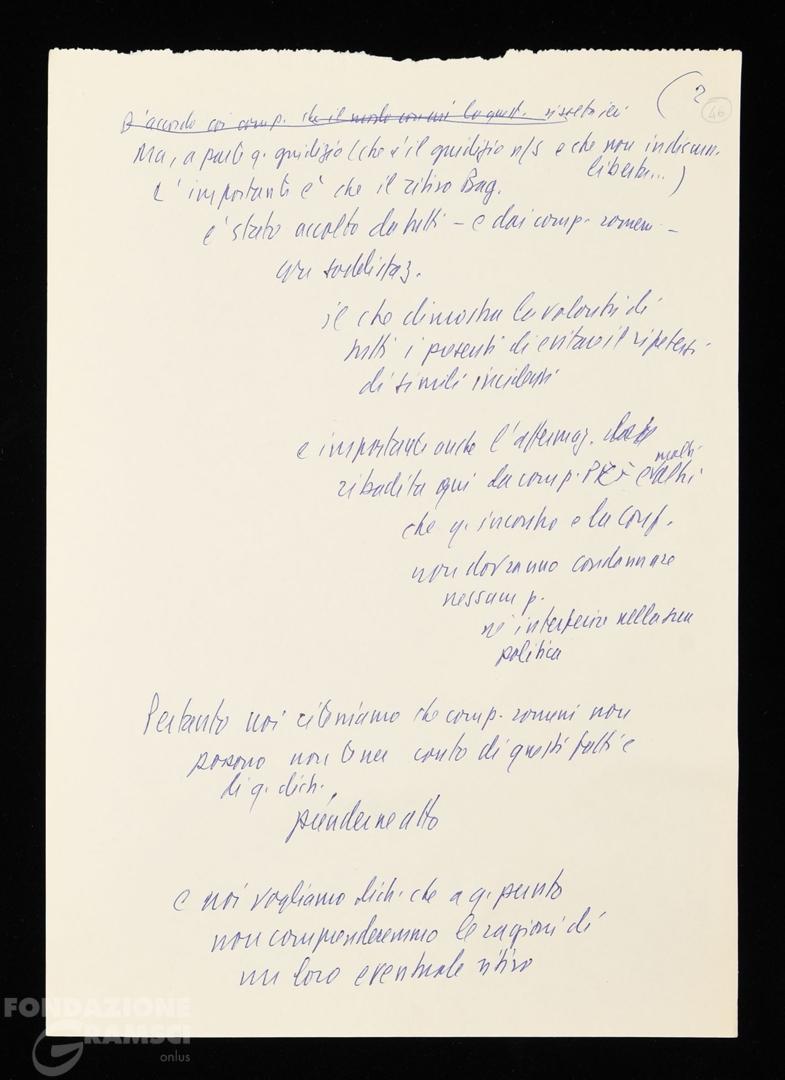 (2
46
D'accordo coi comp. che il modo con cui la quest. risolta ieri
Ma, a parte q. giudizio (che è il giudizio n/s e che non indiscam.
libertà...)
L'importante è che il ritiro Bag.
è stato accolto da tutti – e dai comp. romeni –
con soddisfaz.
il che dimostra la volontà di
tutti i presenti di evitare il ripetersi
di simili incidenti
e importante anche l'affermaz.
ribadita qui da comp. e molti altri
che q. incontro e la conf.
non dovranno condannare
nessun p.
né interferire nella sua
politica
Pertanto noi riteniamo che comp. romeni non
possono non tener conto di questi fatti e
di q. dich.,
prenderne atto
e noi vogliamo dich. che a q. punto
non comprenderemmo le ragioni di
un loro eventuale ritiro
FONDAZIONE
GRAMSCI
onlus